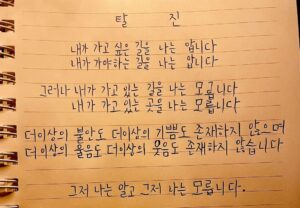 탈 진
내가 가고 싶은 길을 나는 압니다
내가 가야하는 길을 나는 압니다
그러나 내가 가고 있는 길을 나는 모릅니다
내가 가고 있는 곳을 나는 모릅니다
더이상의 불안도 더이상의 기쁨도 존재하지 않으며
더 이상의 울음도 더이상의 웃음도 존재하지 않습니다
그저 나는 알고 그저 나는 모릅니다.